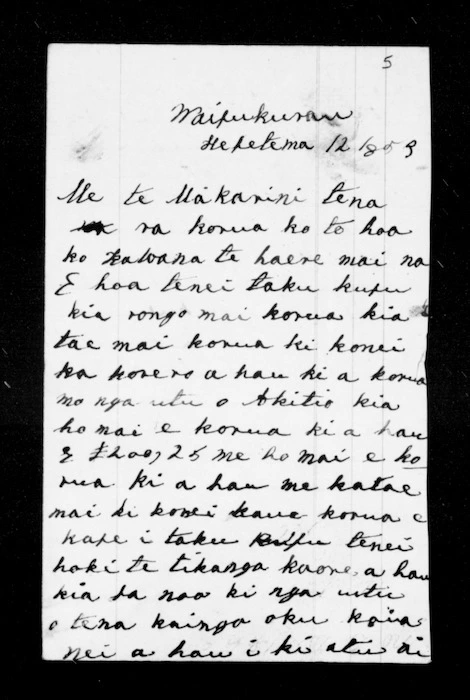 5
Waipukurau
Hepetema 12 1859
Me te Makarini tena
ra korua ko to hoa
ko Kawana te haere mai na
E hoa tenei taku kupu
kia rongo mai korua kia
tae mai korua ki konei
ka korero a hau ki a korua
mo nga utu o Akitio kia
ho mai e korua ki a hau
£200, 25 me ho mai e ko
rua ki a hau me ka tae
mai ki konei kaua korua e
kape i taku kupu tenei
hoki te tikanga kaore a hau
kia na noa ki nga utu
o tena kainga oku koia
nei a hau i ki atu ai